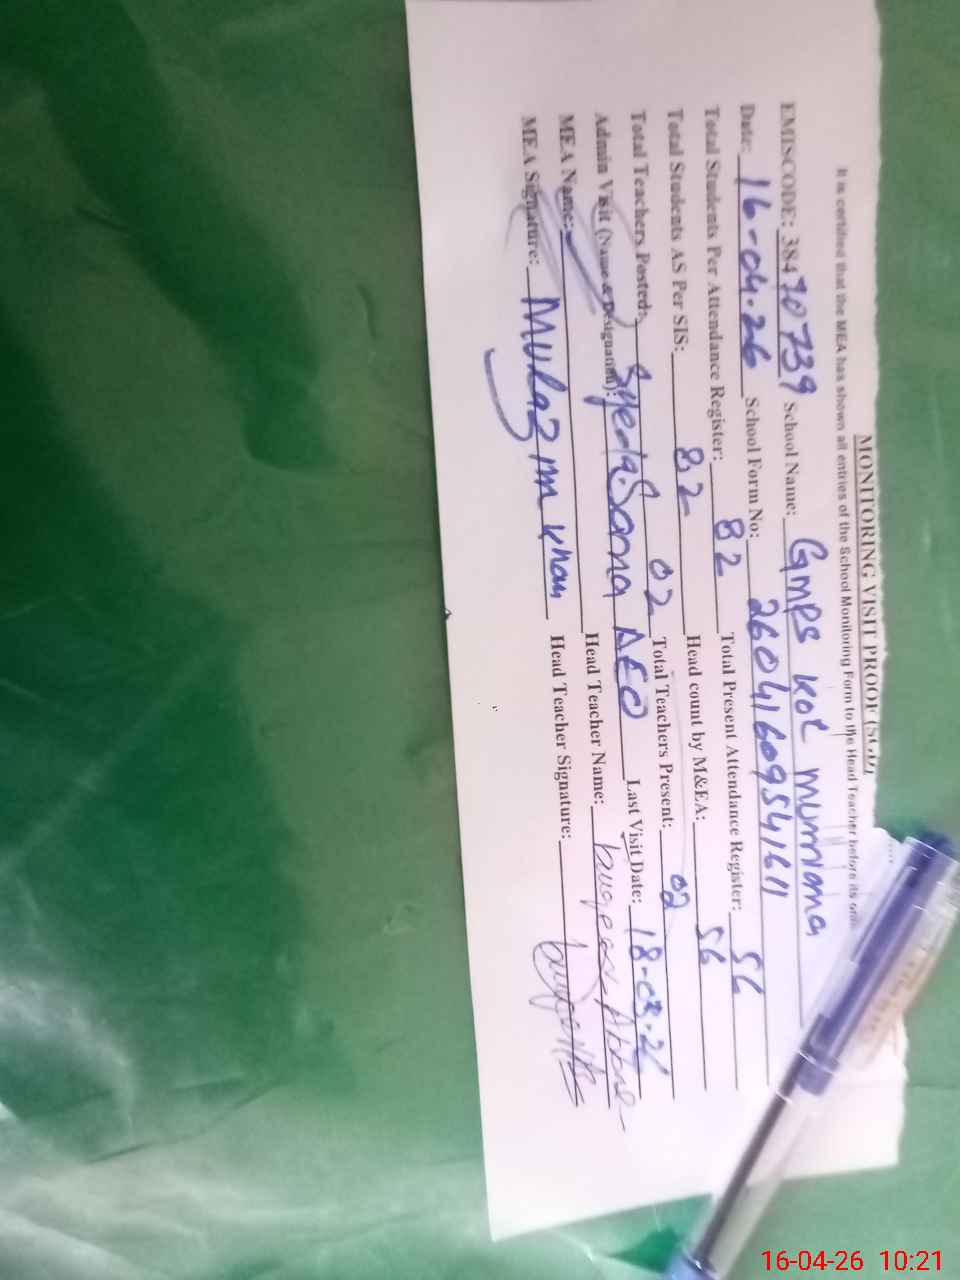 MONITORING VISIT PROOF (SGD)
It is certified that the MEA has shown all entries of the School Monitoring Form to the Head Teacher before its
EMISCODE: 38470739 School Name: GMPS Kot mumiana
Date: 16-04-26 School Form No: 26041609541611
Total Students Per Attendance Register: 82 Total Present Attendance Register: 56
Total Students AS Per SIS: 82 Head count by M&EA: 56
Total Teachers Posted: 02 Total Teachers Present: 02
Admin Visit (Name & Designation): Syeda Sama AEO Last Visit Date: 18-03-26
MEA Name: Head Teacher Name:
MEA Signature: Mulazim Khan Head Teacher Signature:
16-04-26 10:21